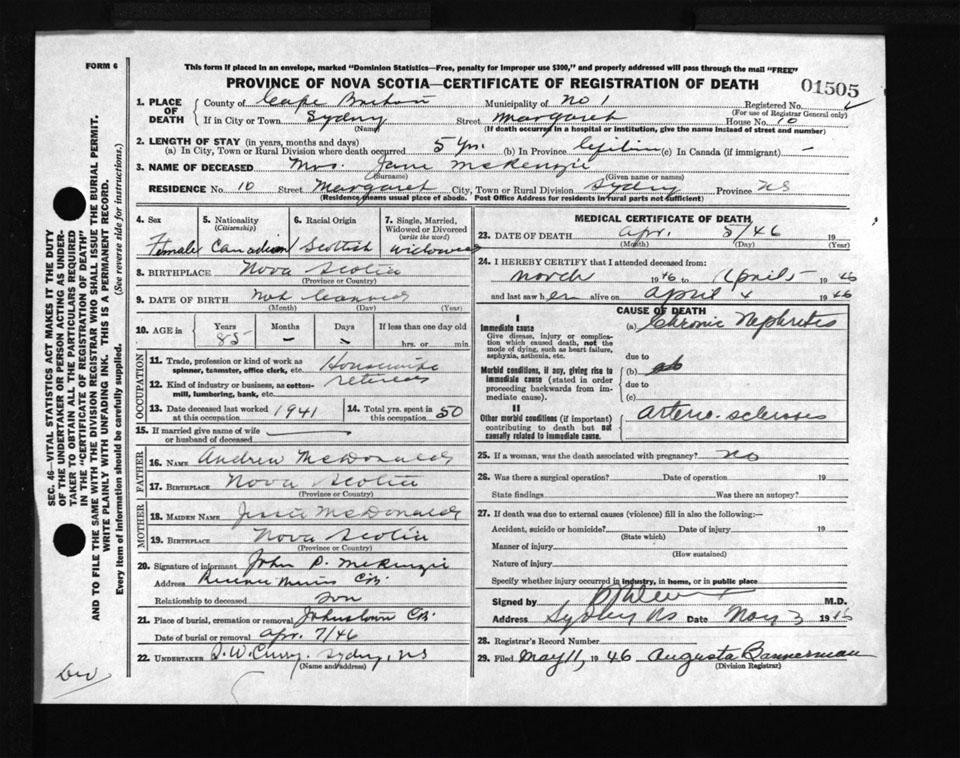 FORM 6
This form If placed in an envelope, marked "Dominion Statistics—Free, penalty for improper use $300," and properly addressed will pass through the mail "FREE"
PROVINCE OF NOVA SCOTIA—CERTIFICATE OF REGISTRATION OF DEATH
01505
1. PLACE OF DEATH
County of Cape Breton Municipality of No 1 Registered No.
(For use of Registrar General only)
If in City or Town Sydney Street Margaret House No. 10
(Name) (If death occurred in a hospital or institution, give the name instead of street and number)
2. LENGTH OF STAY (in years, months and days)
(a) In City, Town or Rural Division where death occurred 5 yrs. (b) In Province Lifetime (c) In Canada (if immigrant) —
3. NAME OF DECEASED Mrs. Jane McKenzie
(Surname) (Given name or names)
RESIDENCE No. 10 Street Margaret City, Town or Rural Division Sydney Province NS
(Residence means usual place of abode. Post Office Address for residents in rural parts not sufficient)
4. Sex
Female
5. Nationality
(Citizenship)
Canadian
6. Racial Origin
Scottish
7. Single, Married, Widowed or Divorced
(write the word)
Widowed
8. BIRTHPLACE Nova Scotia
(Province or Country)
9. DATE OF BIRTH Not
(Month) (Day) (Year)
10. AGE in
Years Months Days If less than one day old
85 — — hrs. or min.
OCCUPATION
11. Trade, profession or kind of work as spinner, teamster, office clerk, etc. Housewife
12. Kind of industry or business, as cotton-mill, lumbering, bank, etc. retired
13. Date deceased last worked at this occupation 1941
14. Total yrs. spent in this occupation 50
15. If married give name of wife or husband of deceased —
FATHER
16. NAME Andrew McDonald
17. BIRTHPLACE Nova Scotia
(Province or Country)
MOTHER
18. MAIDEN NAME Jessie McDonald
19. BIRTHPLACE Nova Scotia
(Province or Country)
20. Signature of informant John P. McKenzie
Address Reserve Mines C.B.
Relationship to deceased son
21. Place of burial, cremation or removal Johnstown C.B.
Date of burial or removal Apr. 7/46
22. UNDERTAKER Curry, Sydney, NS
(Name and address)
MEDICAL CERTIFICATE OF DEATH
23. DATE OF DEATH Apr. 5/46 19
(Month) (Day) (Year)
24. I HEREBY CERTIFY that I attended deceased from:
March 1946 to April 5 1946
and last saw her alive on April 4 1946
CAUSE OF DEATH
I
Immediate cause
Give disease, injury or complication which caused death, not the mode of dying, such as heart failure, asphyxia, asthenia, etc.
(a) Chronic Nephritis
due to
Morbid conditions, if any, giving rise to immediate cause (stated in order proceeding backwards from immediate cause).
(b)
due to
(c)
II
Other morbid conditions (if important) contributing to death but not causally related to immediate cause.
Arterio-sclerosis
25. If a woman, was the death associated with pregnancy? no
26. Was there a surgical operation? Date of operation 19
State findings Was there an autopsy?
27. If death was due to external causes (violence) fill in also the following:—
Accident, suicide or homicide? Date of injury 19
(State which)
Manner of injury
(How sustained)
Nature of injury
Specify whether injury occurred in industry, in home, or in public place
Signed by M.D.
Address Sydney NS Date May 3 1946
28. Registrar's Record Number
29. Filed May 11, 1946 Augusta Bannerman
(Division Registrar)
SEC. 46—VITAL STATISTICS ACT MAKES IT THE DUTY
OF THE UNDERTAKER OR PERSON ACTING AS UNDER-
TAKER TO OBTAIN ALL THE PARTICULARS REQUIRED
IN THE "CERTIFICATE OF REGISTRATION OF DEATH"
AND TO FILE THE SAME WITH THE DIVISION REGISTRAR WHO SHALL ISSUE THE BURIAL PERMIT.
WRITE PLAINLY WITH UNFADING INK. THIS IS A PERMANENT RECORD.
Every item of information should be carefully supplied. (See reverse side for instructions.)